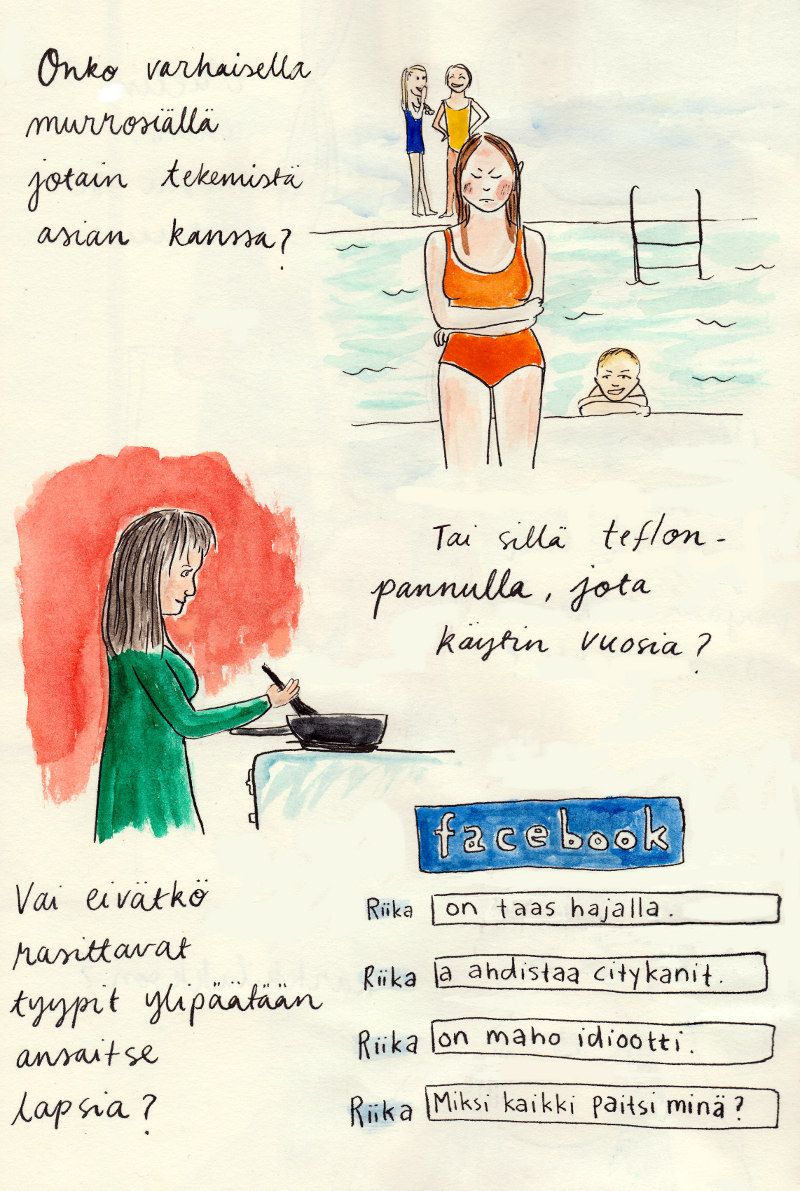 Onko varhaisella
murrosiällä
jotain tekemistä
asian kanssa?
Tai sillä teflon-
pannulla, jota
käytin vuosia?
Vai eivätkö
rasittavat
tyypit ylipäätään
ansaitse
lapsia?
facebook
Riika on taas hajalla.
Riika a ahdistaa citykanit.
Riika on maho idiootti.
Riika Miksi kaikki paitsi minä?